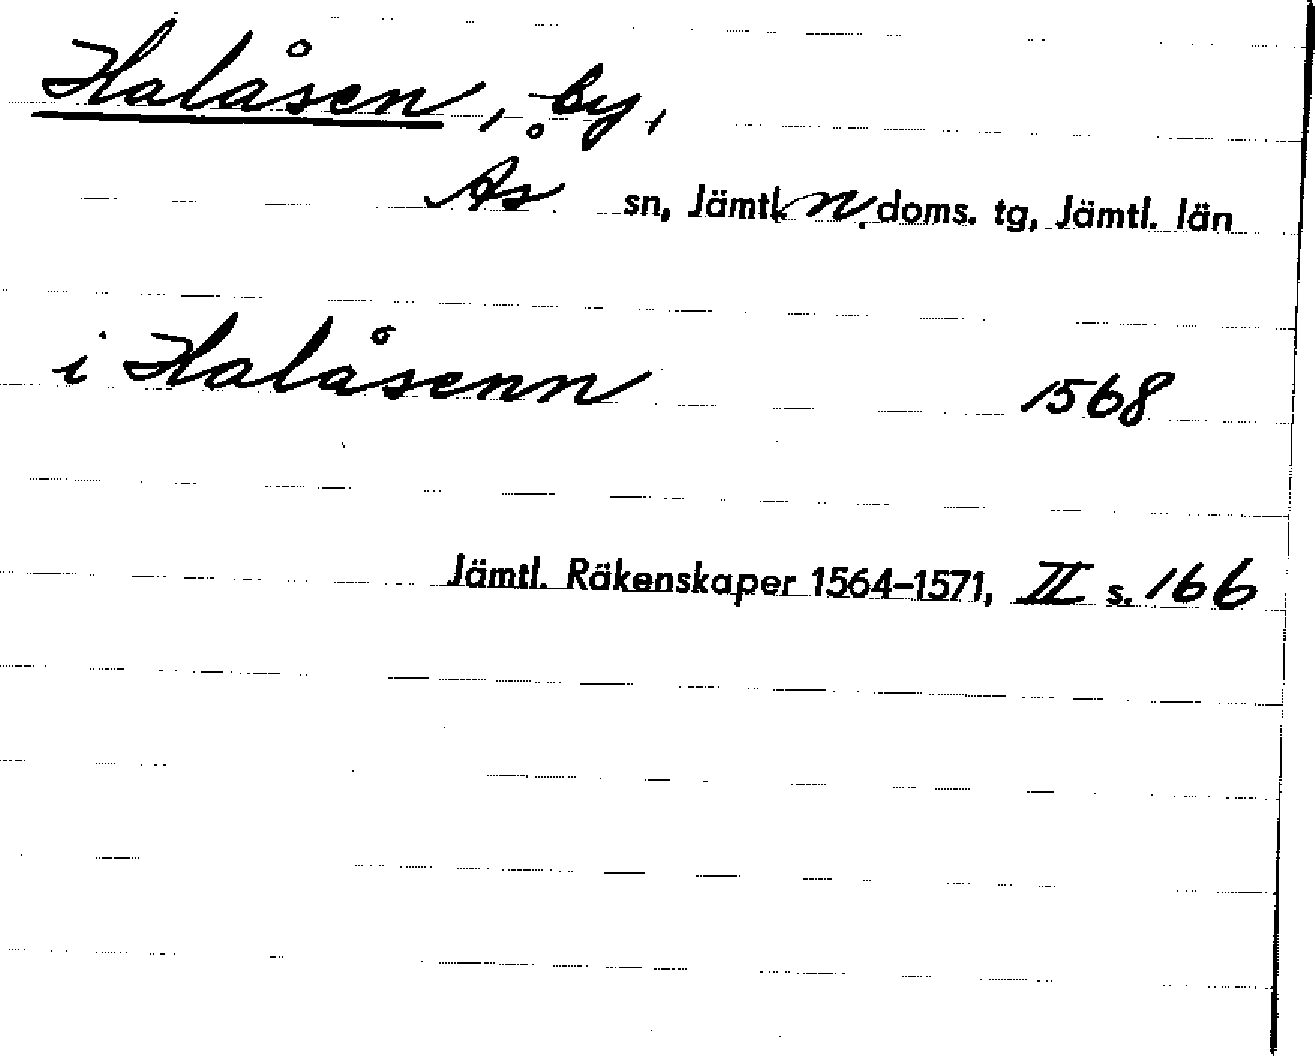 Halåsen, by,
Ås sn, Jämtl. n. doms. tg, Jämtl. län
i Halåsenn 1568
Jämtl. Räkenskaper 1564-1571, II s. 166